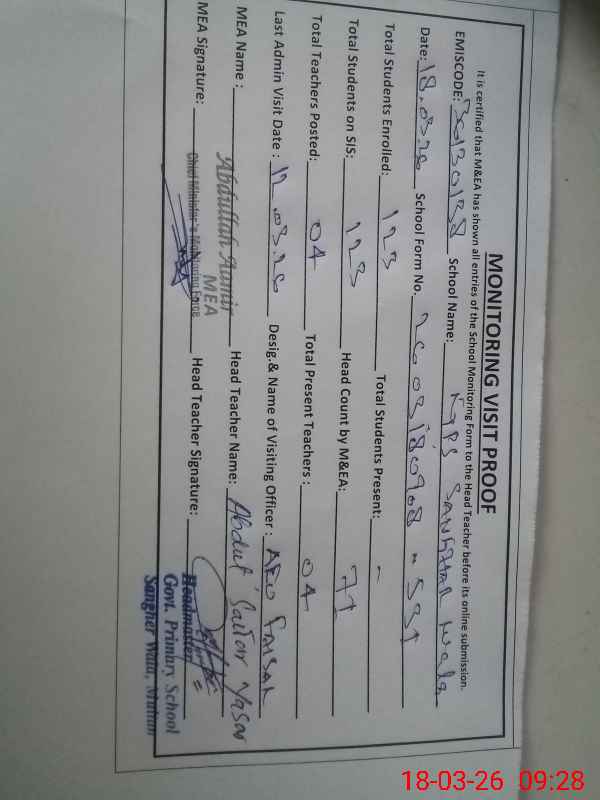 MONITORING VISIT PROOF
It is certified that M&EA has shown all entries of the School Monitoring Form to the Head Teacher before its online submission.
EMISCODE: 36130138 School Name: GPS SANGHAR Wala
Date: 18.03.26 School Form No. 2603180908-531
Total Students Enrolled: 123 Total Students Present: -
Total Students on SIS: 123 Head Count by M&EA: 71
Total Teachers Posted: 04 Total Present Teachers: 04
Last Admin Visit Date: 12.03.26 Desig.& Name of Visiting Officer: AEO FAISAL
MEA Name: Abdullah Aamir Head Teacher Name: Abdul Sattar Yasar
MEA
MEA Signature: Chief Minister's Monitoring Force Head Teacher Signature:
Headmaster
Govt. Primary School
Sangher Wala, Multan
18-03-26 09:28